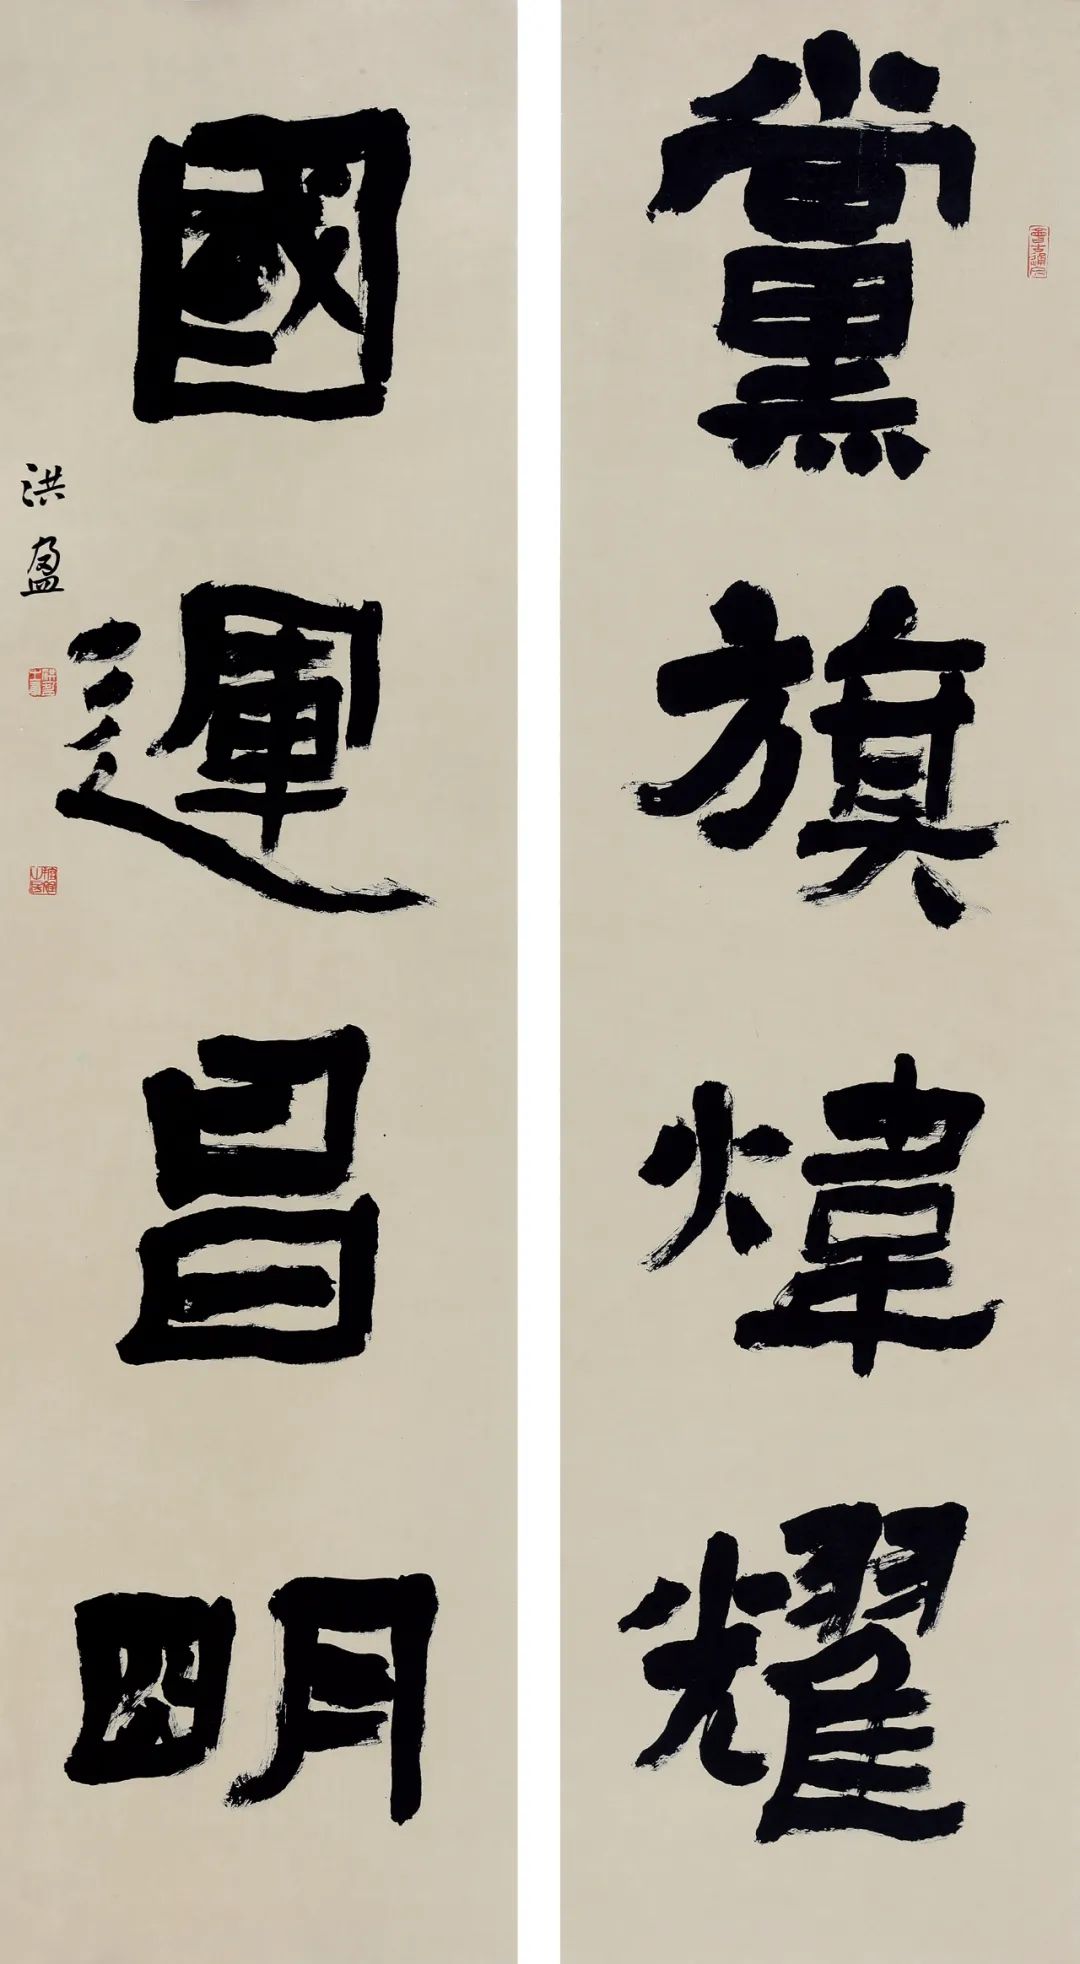 黨旗煒耀
國運昌明
洪盈